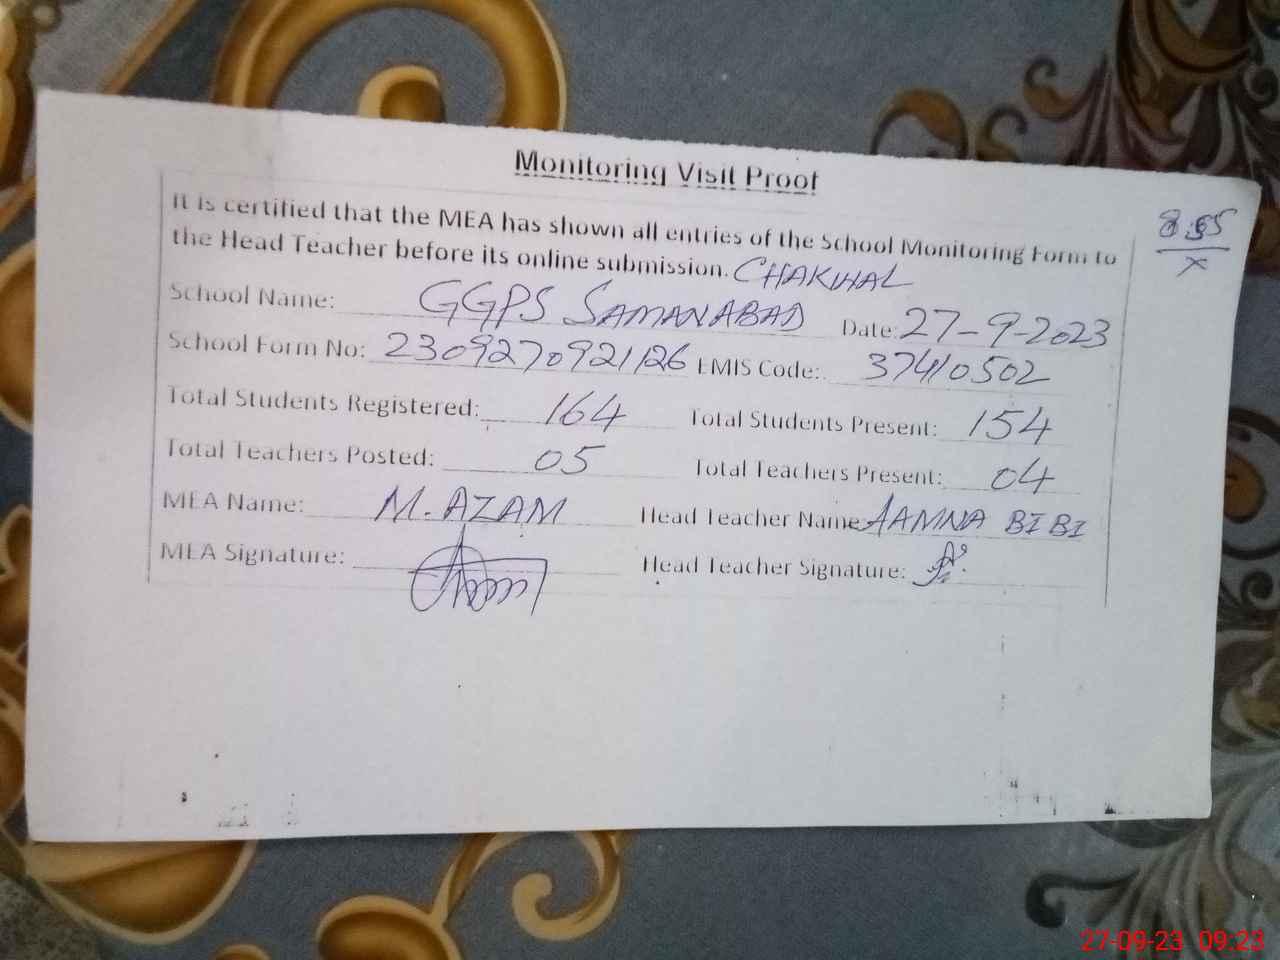 Monitoring Visit Proof
It is certified that the MEA has shown all entries of the School Monitoring Form to
the Head Teacher before its online submission. CHAKWAL
School Name: GGPS SAMANABAD Date: 27-9-2023
School Form No: 230927092126 EMIS Code: 37410502
Total Students Registered: 164 Total Students Present: 154
Total Teachers Posted: 05 Total Teachers Present: 04
MEA Name: M. AZAM Head Teacher Name AAMNA BIBI
MEA Signature: Head Teacher Signature:
27-09-23 09:23